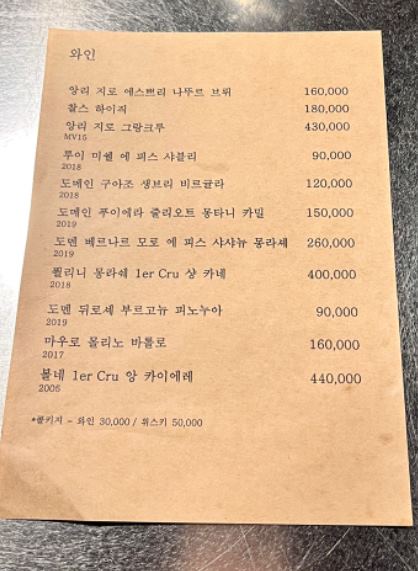 와인
앙리 지로 에스쁘리 나뚜르 브뤼 160,000
찰스 하이직 180,000
앙리 지로 그랑크루 430,000
MV15
루이 미쉘 에 피스 샤블리 90,000
2018
도메인 구아조 생브리 비르귤라 120,000
2018
도메인 푸이에라 줄리오트 몽타니 카밀 150,000
2019
도멘 베르나르 모로 에 피스 샤샤뉴 몽라셰 260,000
2019
쀨리니 몽라쉐 1er Cru 샹 카네 400,000
2018
도멘 뒤로셰 부르고뉴 피노누아 90,000
2019
마우로 몰리노 바롤로 160,000
2017
볼네 1er Cru 앙 카이에레 440,000
2006
*콜키지 - 와인 30,000 / 위스키 50,000